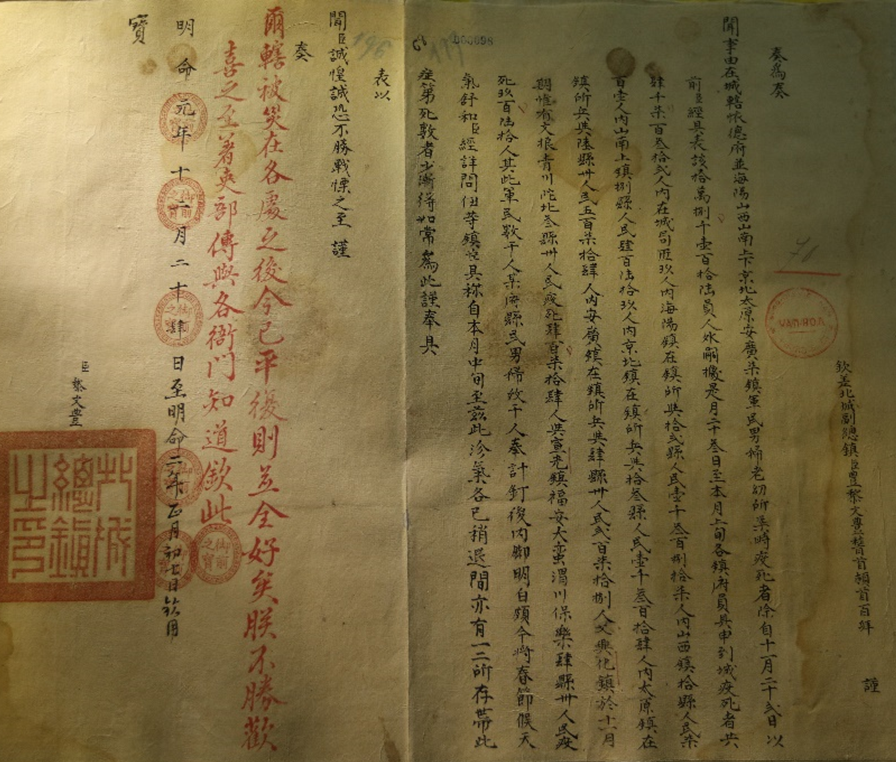 欽差北城副總鎮臣豊黎文豊稽首頓首百拜 謹
奏為奏
聞事由在城轄懷德府並海陽山西山南上下京北太原安廣柒鎮軍民男婦老幼所染時疫死者除自十一月二十弍日以
前臣經具表該拾萬捌千壹百拾陸員人氷嗣機是月二十叁日至本月上旬各鎮府員具申到城疫死者共
肆千柒百叁拾弍人內在城司匠玖人內海陽鎮在鎮所兵拾弍縣人民壹千叁百捌拾柒人內山西鎮拾縣人民柒
百壹人內山南上鎮捌縣人民肆百陸拾玖人內京北鎮在鎮所兵共拾叁縣人民壹千叁百拾肆人內太原鎮在
鎮所兵與陸縣卅人民五百柒拾肆人內安廣鎮在鎮所兵與肆縣卅人民弍百柒拾捌人又興化鎮於十一月
期惟有文振青川陀北叁縣卅人民疫死肆百柒拾肆人與宣光鎮福安大蛮渭川保樂肆縣卅人民疫
死玖百陸拾人其此軍民數干人某府縣民男婦數干人奉計釘後內鄉明白頗今將春節候天
氣舒和臣經詳問等鎮具称自本月中旬至茲此沴氣各已稍退間亦有一二所存帶此
症第死數者少漸得如常為此謹奉具
表以
聞臣誠惶誠恐不勝戰慄之至 謹
奏
爾轄被災在各處之後今已平復則並全好矣朕不勝歡
喜之至著吏部傳與各衙門知道欽此
明命元年十二月二十肆日至明命二年正月初七日欽用
寶
臣黎文豊
北城總鎮之印
御前之寶
000098
71